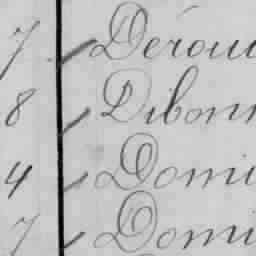 7 Dérou
8 Dibon
4 Domi
7 Domi